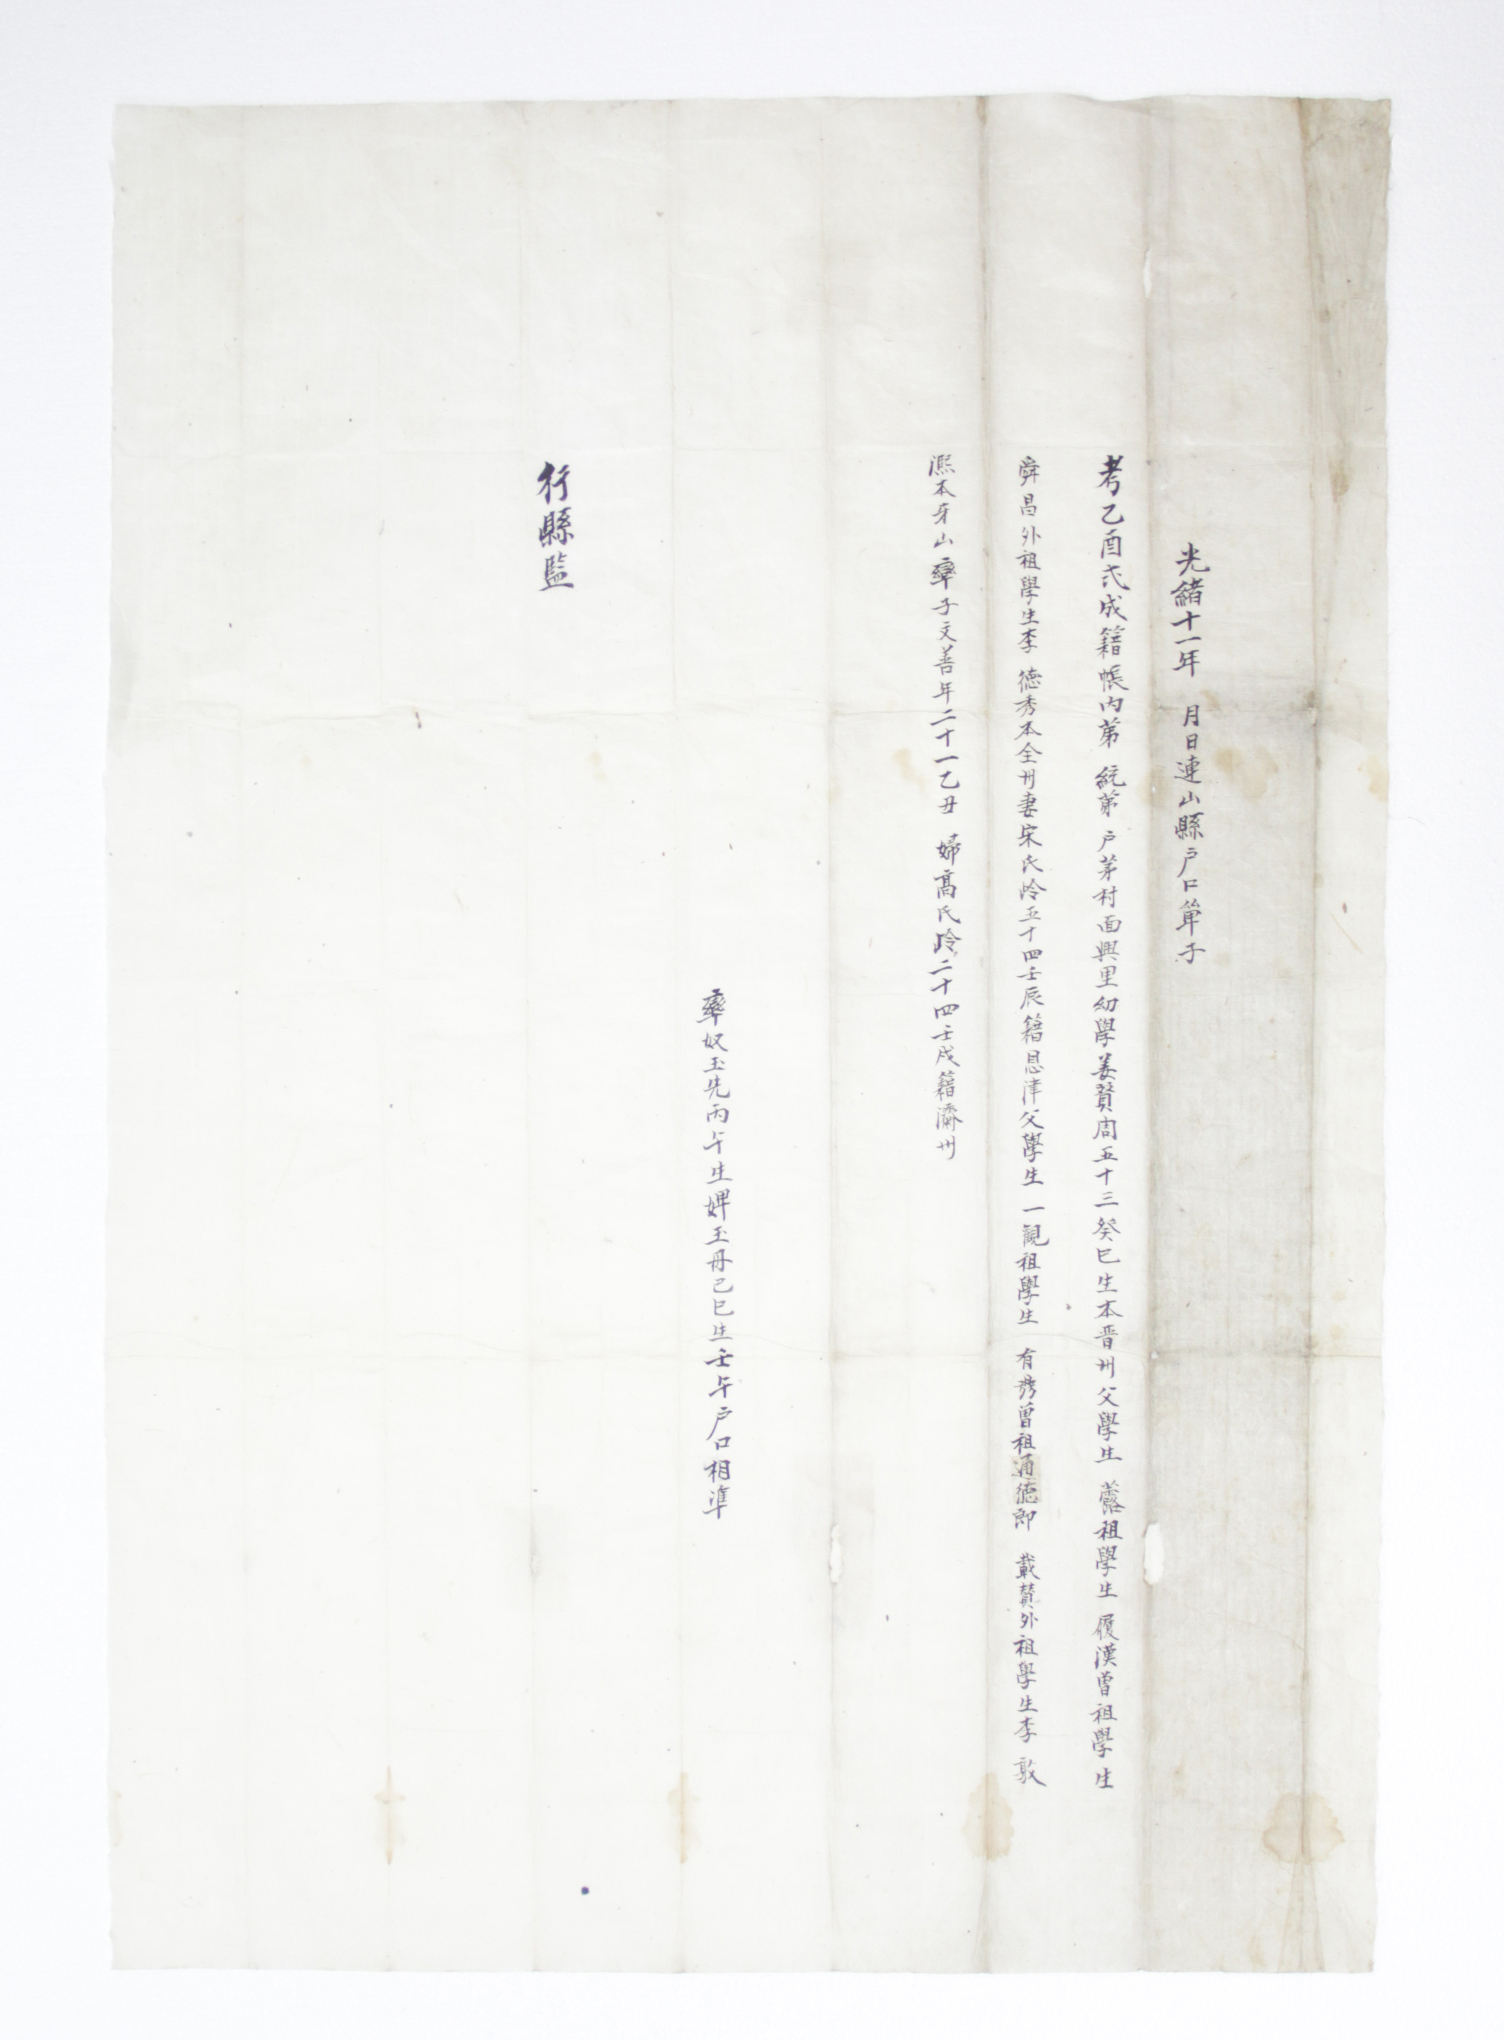 光緖十一年 月日連山縣戶口單子
考乙酉式成籍帳內第 統第 戶茅村面興里幼學姜贊周五十三癸巳生本晋州父學生 蘟祖學生 履漢曾祖學生
舜昌外祖學生李 德秀本全州妻宋氏岭五十四壬辰籍恩津父學生 一觀祖學生 有秀曾祖通德郞 載贊外祖學生李 敦
凞本牙山率子文善年二十一乙丑 婦高氏岭二十四壬戌籍濟州
率奴玉先丙午生婢玉丹己巳生壬午戶口相準
行縣監